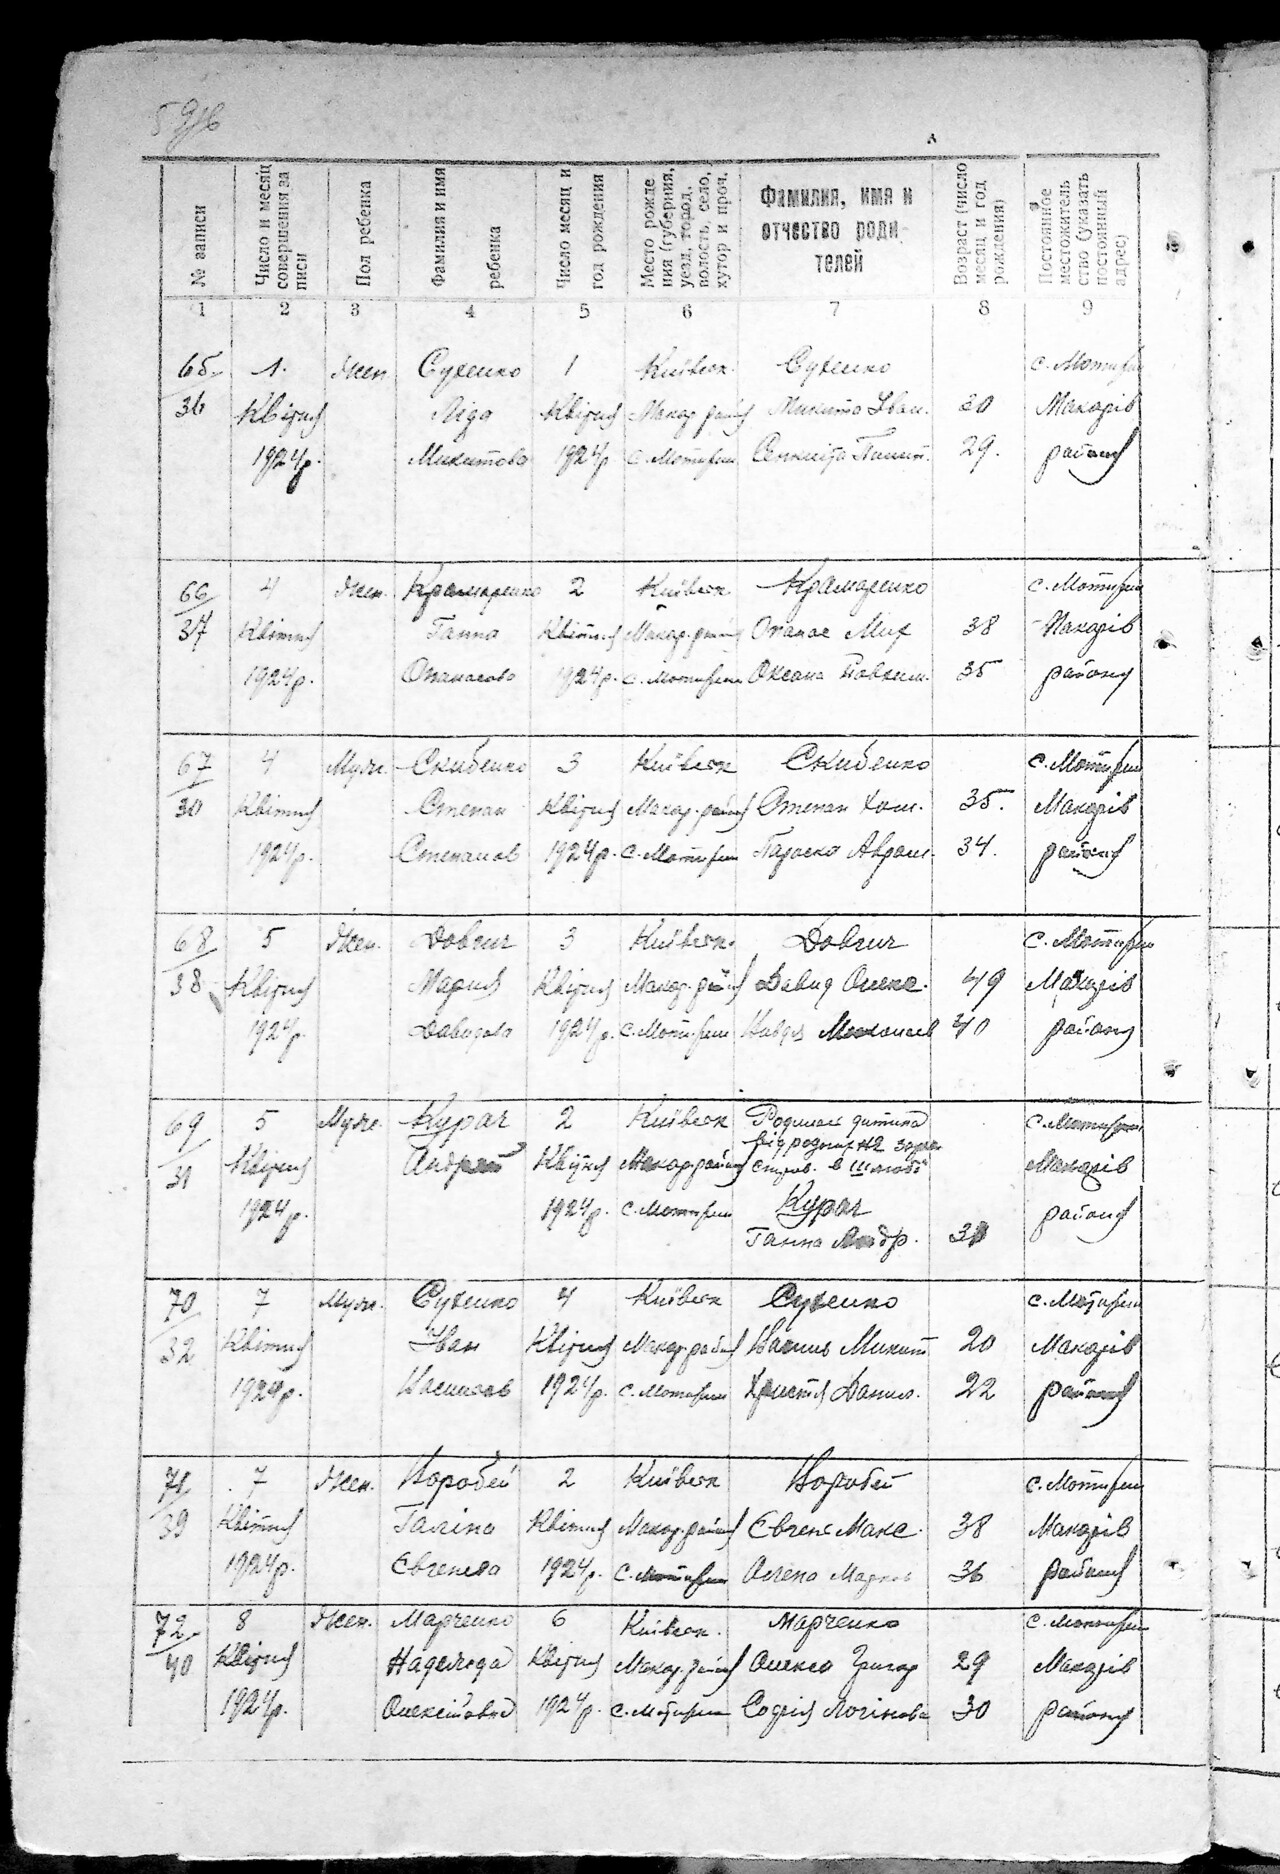 № записи
Число и месяц совершения за писи
Пол ребенка
Фамилия и имя ребенка
Число месяц и год рождения
Место рожде ния (губерния, уезд, город, волость, село, хутор и проч.
Фамилия, имя и отчество роди телей
Возраст (число месяц и год рождения)
Постоянное местожитель ство (указать постоянный адрес)
1 2 3 4 5 6 7 8 9
65 1. Жен Сухенко 1 Київськ. Сухенко с. Мотижин
36 Квітня Ліда Квітня Макар. район Микита Іван. 30 Макарів
1924р. Микитова 1924р с. Мотижин 29. району
66 4 Жен. Крамаренко 2 Київськ Крамаренко с. Мотижин
37 Квітня Ганна Квітня Макар. район Опанас Мих 38 Макарів
1924р. Опанасова 1924р. с. Мотижин Оксана 35 району
67 4 Муж. Скибенко 3 Київськ Скибенко с. Мотижин
30 Квітня Степан Квітня Макар. район Степан Хом. 35. Макарів
1924р. Степанов 1924р. с. Мотижин Параска Аврам. 34. району
68 5 Жен. Довгич 3 Київськ. Довгич с. Мотижин
38 Квітня Мария Квітня Макар. район Давид Олекс. 49 Макарів
1924р. Давидова 1924р. с. Мотижин 40 району
69 5 Муж. Курач 2 Київськ Родилась дитина с. Мотижин
31 Квітня Андрій Квітня Макар район від родних не зареє Макарів
1924р. 1924р. с. Мотижин в шлюбі району
Курач
Ганна Андр.
70 7 Муж. Сухенко 4 Київськ Сухенко с. Мотижин
32 Квітня Іван Квітня Макар. район Василь Микит 20 Макарів
1924р. Васильов 1924р. с. Мотижин Христя Данил. 22 району
71 7 Жен. Воробей 2 Київськ Воробей с. Мотижин
39 Квітня Галіна Квітня Макар. район Євген Макс. 38 Макарів
1924р. Євгенова 1924р. с. Мотижин Олена Марков 36 району
72 8 Жен. Марченко 6 Київськ. Марченко с. Мотижин
40 Квітня Надежда Квітня Макар. район Олекса Григор 29 Макарів
1924р. Олексіевна 1924р. с. Мотижин Софія Логінова 30 району